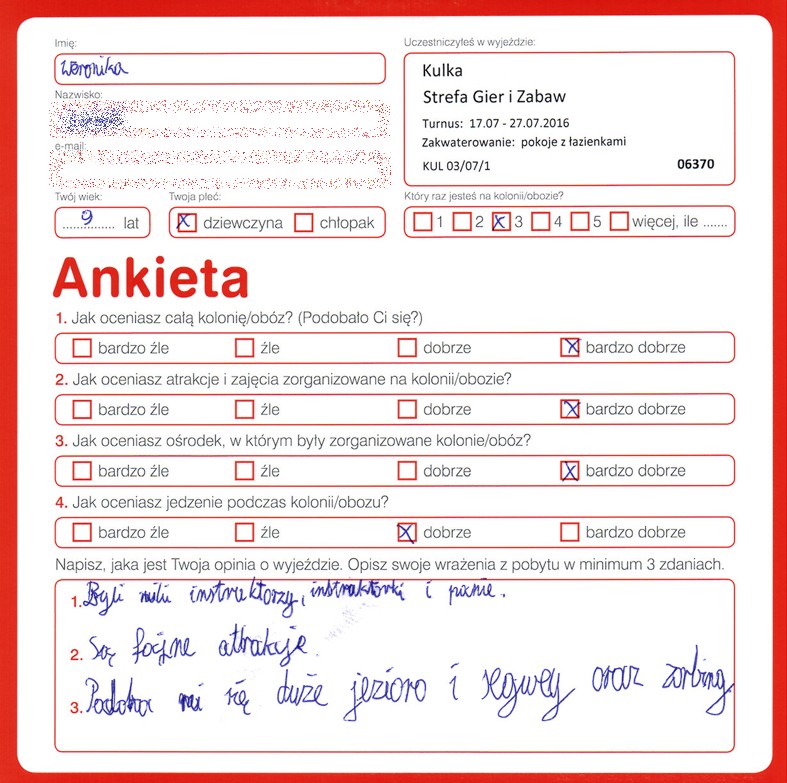 Imię:
Weronika
Nazwisko:
e-mail:
Twój wiek:
9 lat
Twoja płeć:
x dziewczyna chłopak
Uczestniczyłeś w wyjeździe:
Kulka
Strefa Gier i Zabaw
Turnus: 17.07 - 27.07.2016
Zakwaterowanie: pokoje z łazienkami
KUL 03/07/1 06370
Który raz jesteś na kolonii/obozie?
1 2 x 3 4 5 więcej, ile .......
Ankieta
1. Jak oceniasz całą kolonię/obóz? (Podobało Ci się?)
bardzo źle źle dobrze x bardzo dobrze
2. Jak oceniasz atrakcje i zajęcia zorganizowane na kolonii/obozie?
bardzo źle źle dobrze x bardzo dobrze
3. Jak oceniasz ośrodek, w którym były zorganizowane kolonie/obóz?
bardzo źle źle dobrze x bardzo dobrze
4. Jak oceniasz jedzenie podczas kolonii/obozu?
bardzo źle źle x dobrze bardzo dobrze
Napisz, jaka jest Twoja opinia o wyjeździe. Opisz swoje wrażenia z pobytu w minimum 3 zdaniach.
1. Byli mili instruktorzy, instruktorki i panie.
2. Są fajne attrakcje.
3. Podoba mi się duże jezioro i segwey oraz zorbing